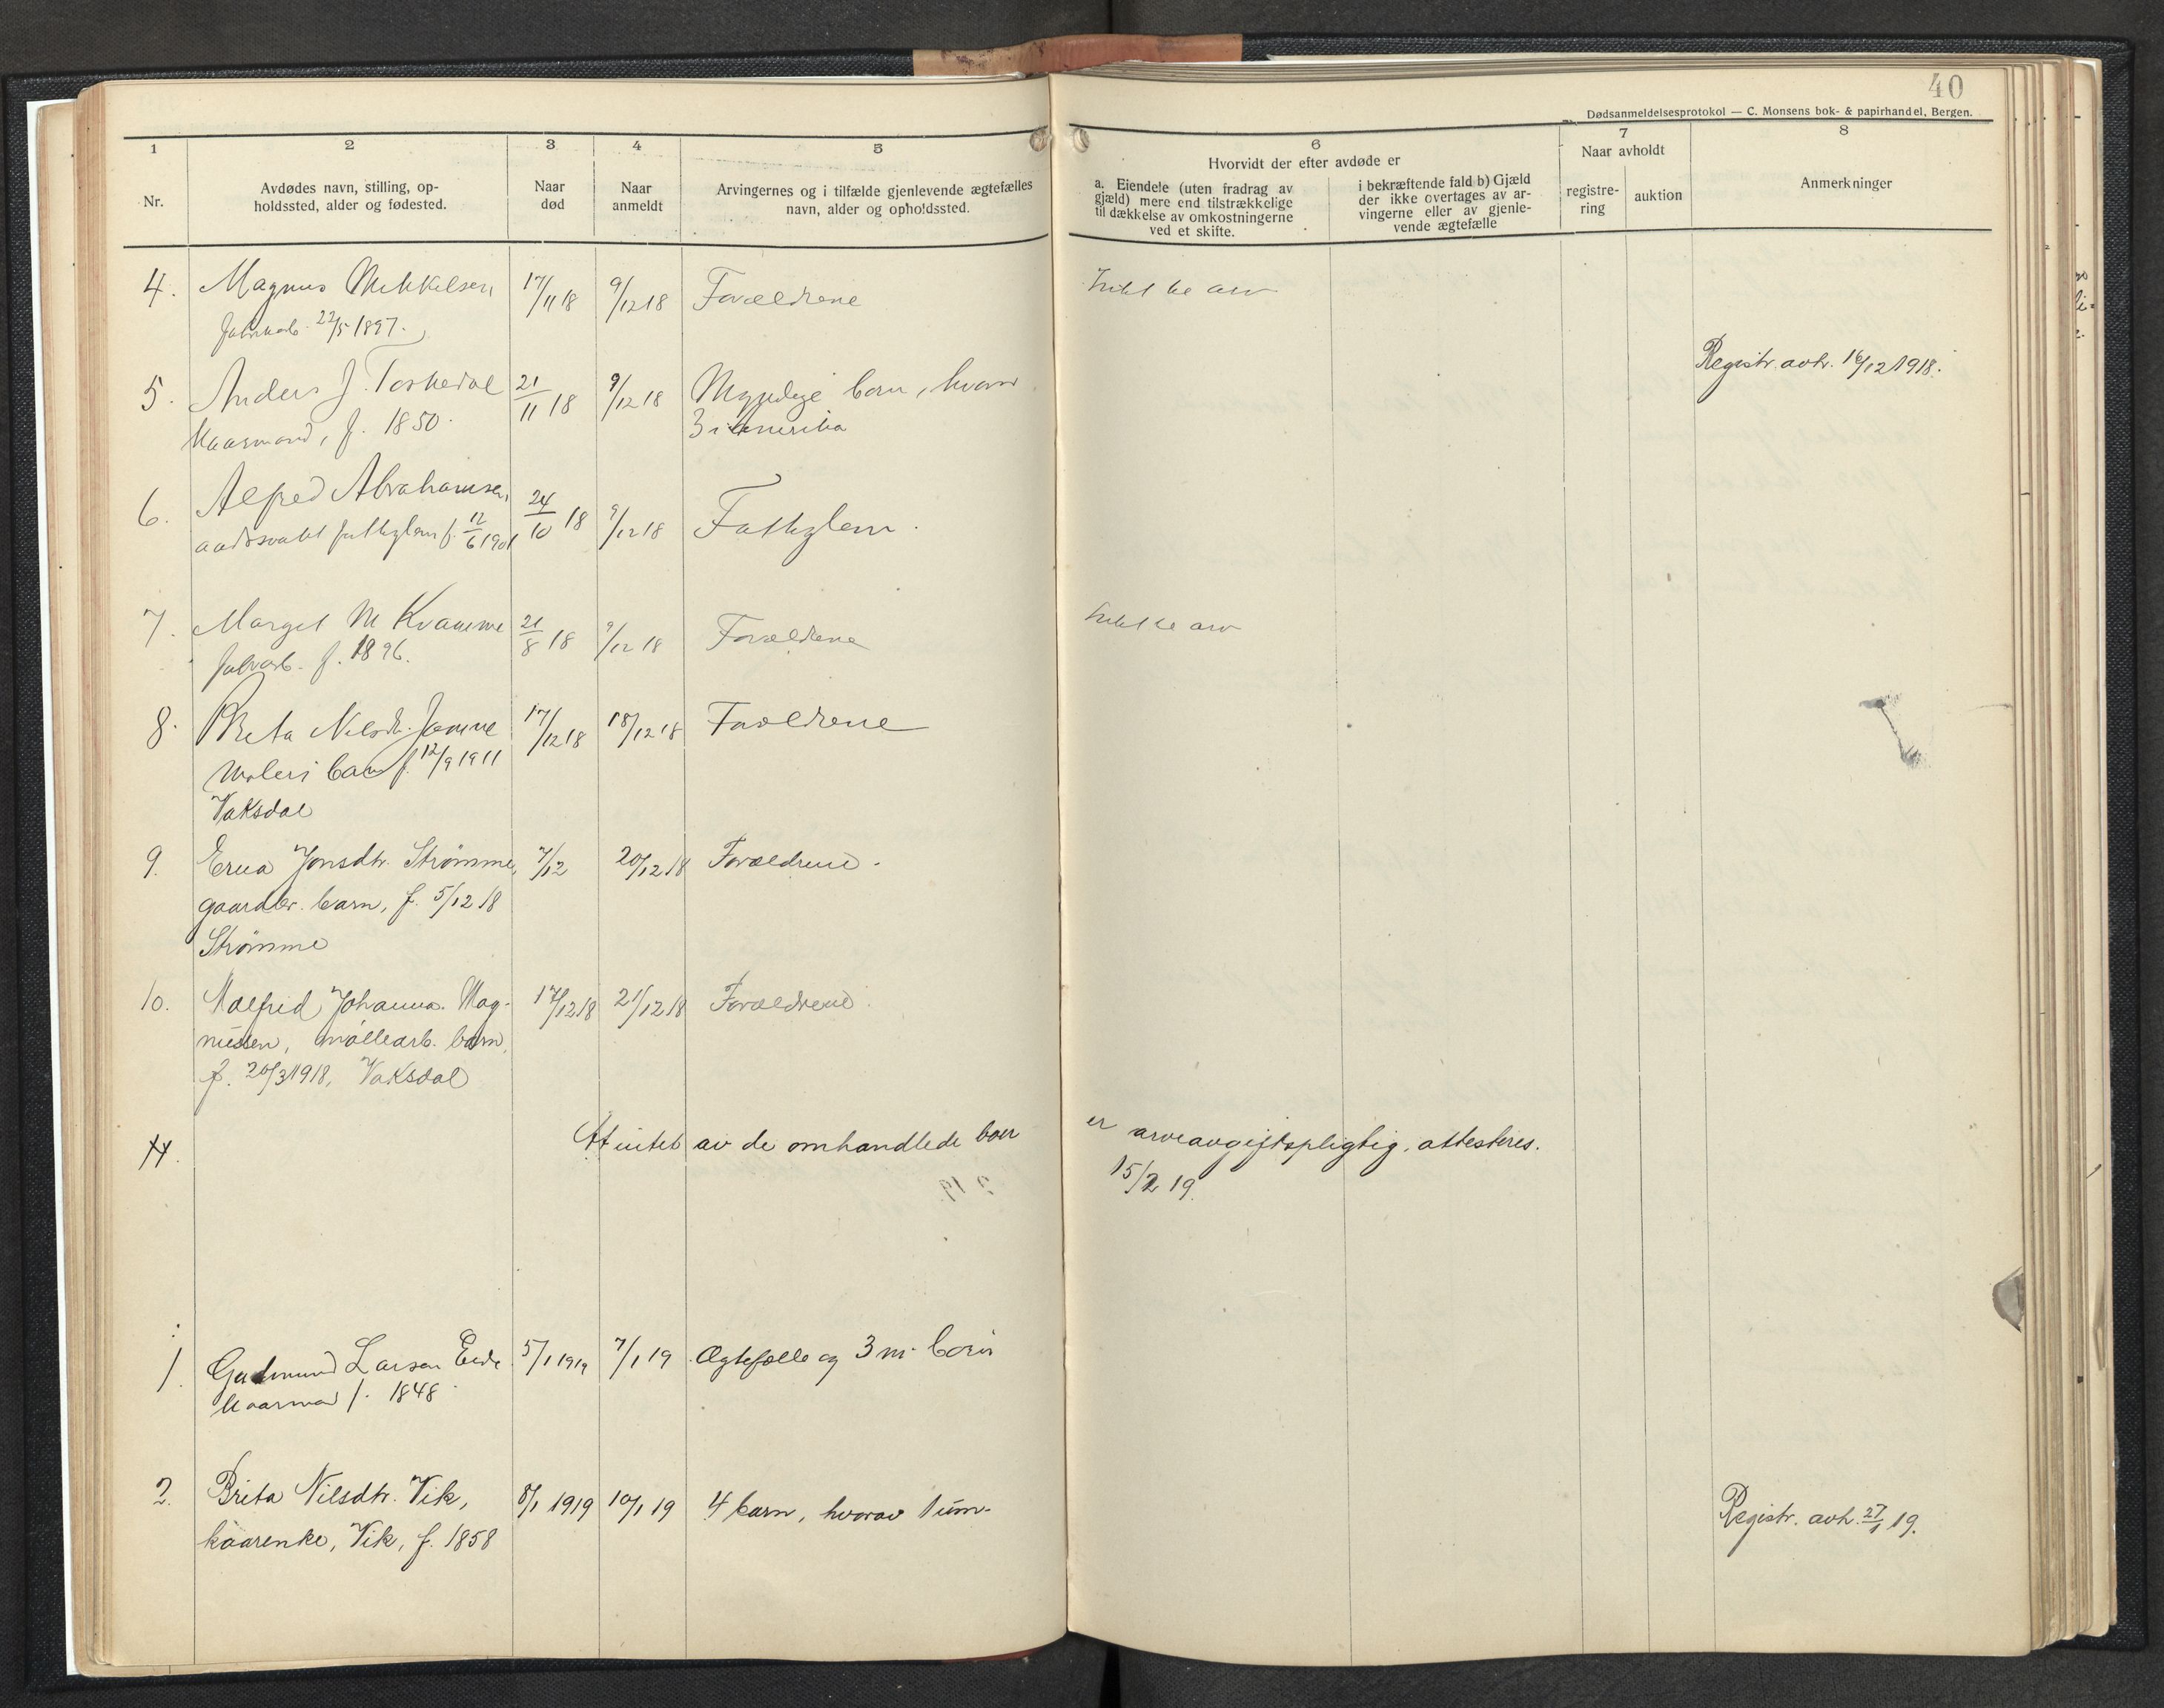 40
Dødsanmeldelsesprotokol — C. Monsens bok- & papirhandel, Bergen.
1 2 3 4 5
Nr.
Avdødes navn, stilling, op-
holdssted, alder og fødested.
Naar
død
Naar
anmeldt
Arvingernes og i tilfælde gjenlevende ægtefælles
navn, alder og opholdssted.
6
Hvorvidt der efter avdøde er
a. Eiendele (uten fradrag av
gjæld) mere end tilstrækkelige
til dækkelse av omkostningerne
ved et skifte.
i bekræftende fald b) Gjæld
der ikke overtages av ar-
vingerne eller av gjenle-
vende ægtefælle
7
Naar avholdt
registre-
ring
auktion
8
Anmerkninger
4. Magnus Mikkelsen 17/11 18 9/12 18 Forældrene
22/5 1897.
Registr. avh. 16/12 1918.
5. Anders J. 21/11 18 9/12 18 Myndige born, hvorav
Kaarmand, f. 1850. 3 i Amerika
6. Alfred Abrahamsen 24/10 18 9/12 18 Fattiglem.
f. 12/6 1901
7. Marget M Kvamme 21/8 18 9/12 18 Forældrene
f. 1896.
8. Brita Nilsdtr. 17/12 18 18/12 18 Forældrene
barn f. 12/9 1911
Vaksdal
9. Erna Jonsdtr. Strømme, 7/12 20/12 18 Forældrene.
gaardbr. barn, f. 5/12 18
Strømme
10. Malfrid Johanna Mag- 17/12 18 21/12 18 Forældrene.
nussen, møllearb. barn,
f. 20/3 1918, Vaksdal
11. At intet av de omhandlede boer er arveavgiftspligtig, attesteres.
15/2 19.
1. Gudmund Larsen Eide 5/1 1919 7/1 19 Ægtefælle og 3 m. born
Kaarmand f. 1848
2. Brita Nilsdtr. Vik, 8/1 1919 10/1 19 4 barn, hvorav 1 um. Registr. avh. 27/1 19.
kaarenke, Vik, f. 1858